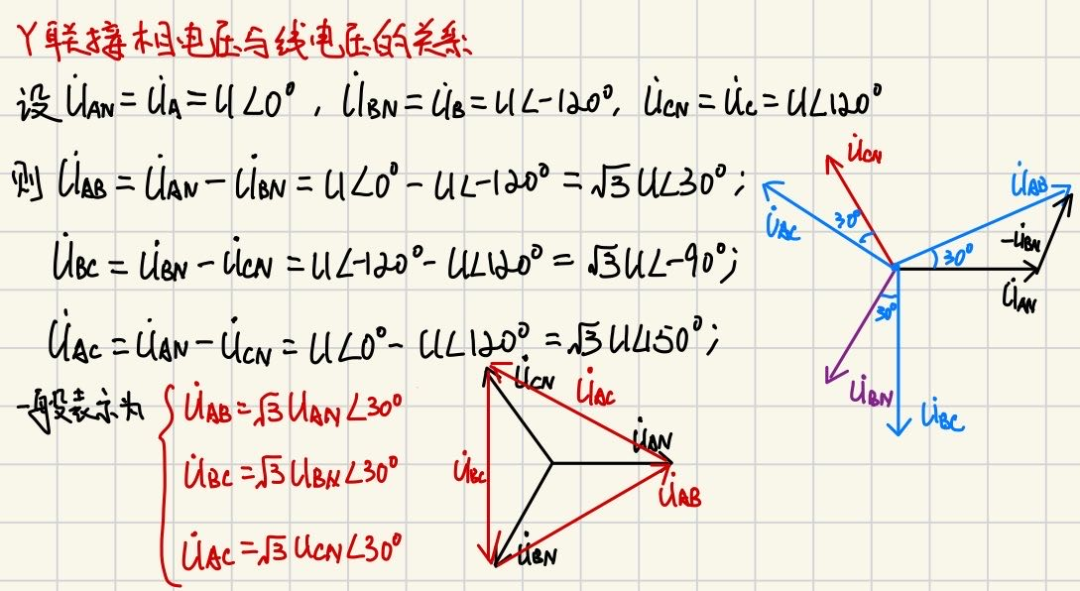 Y联接相电压与线电压的关系:
设 U̇AN = U̇A = U∠0°, U̇BN = U̇B = U∠-120°, U̇CN = U̇C = U∠120°
则 U̇AB = U̇AN - U̇BN = U∠0° - U∠-120° = √3U∠30°;
U̇BC = U̇BN - U̇CN = U∠-120° - U∠120° = √3U∠-90°;
U̇AC = U̇AN - U̇CN = U∠0° - U∠120° = √3U∠150°;
一般表示为
U̇AB = √3 U̇AN∠30°
U̇BC = √3 U̇BN∠30°
U̇AC = √3 U̇CN∠30°
U̇CN
U̇AC
U̇AN
U̇BC
U̇AB
U̇BN
U̇CN
U̇AB
U̇AC
30°
-U̇BN
30°
U̇AN
30°
U̇BN
U̇BC